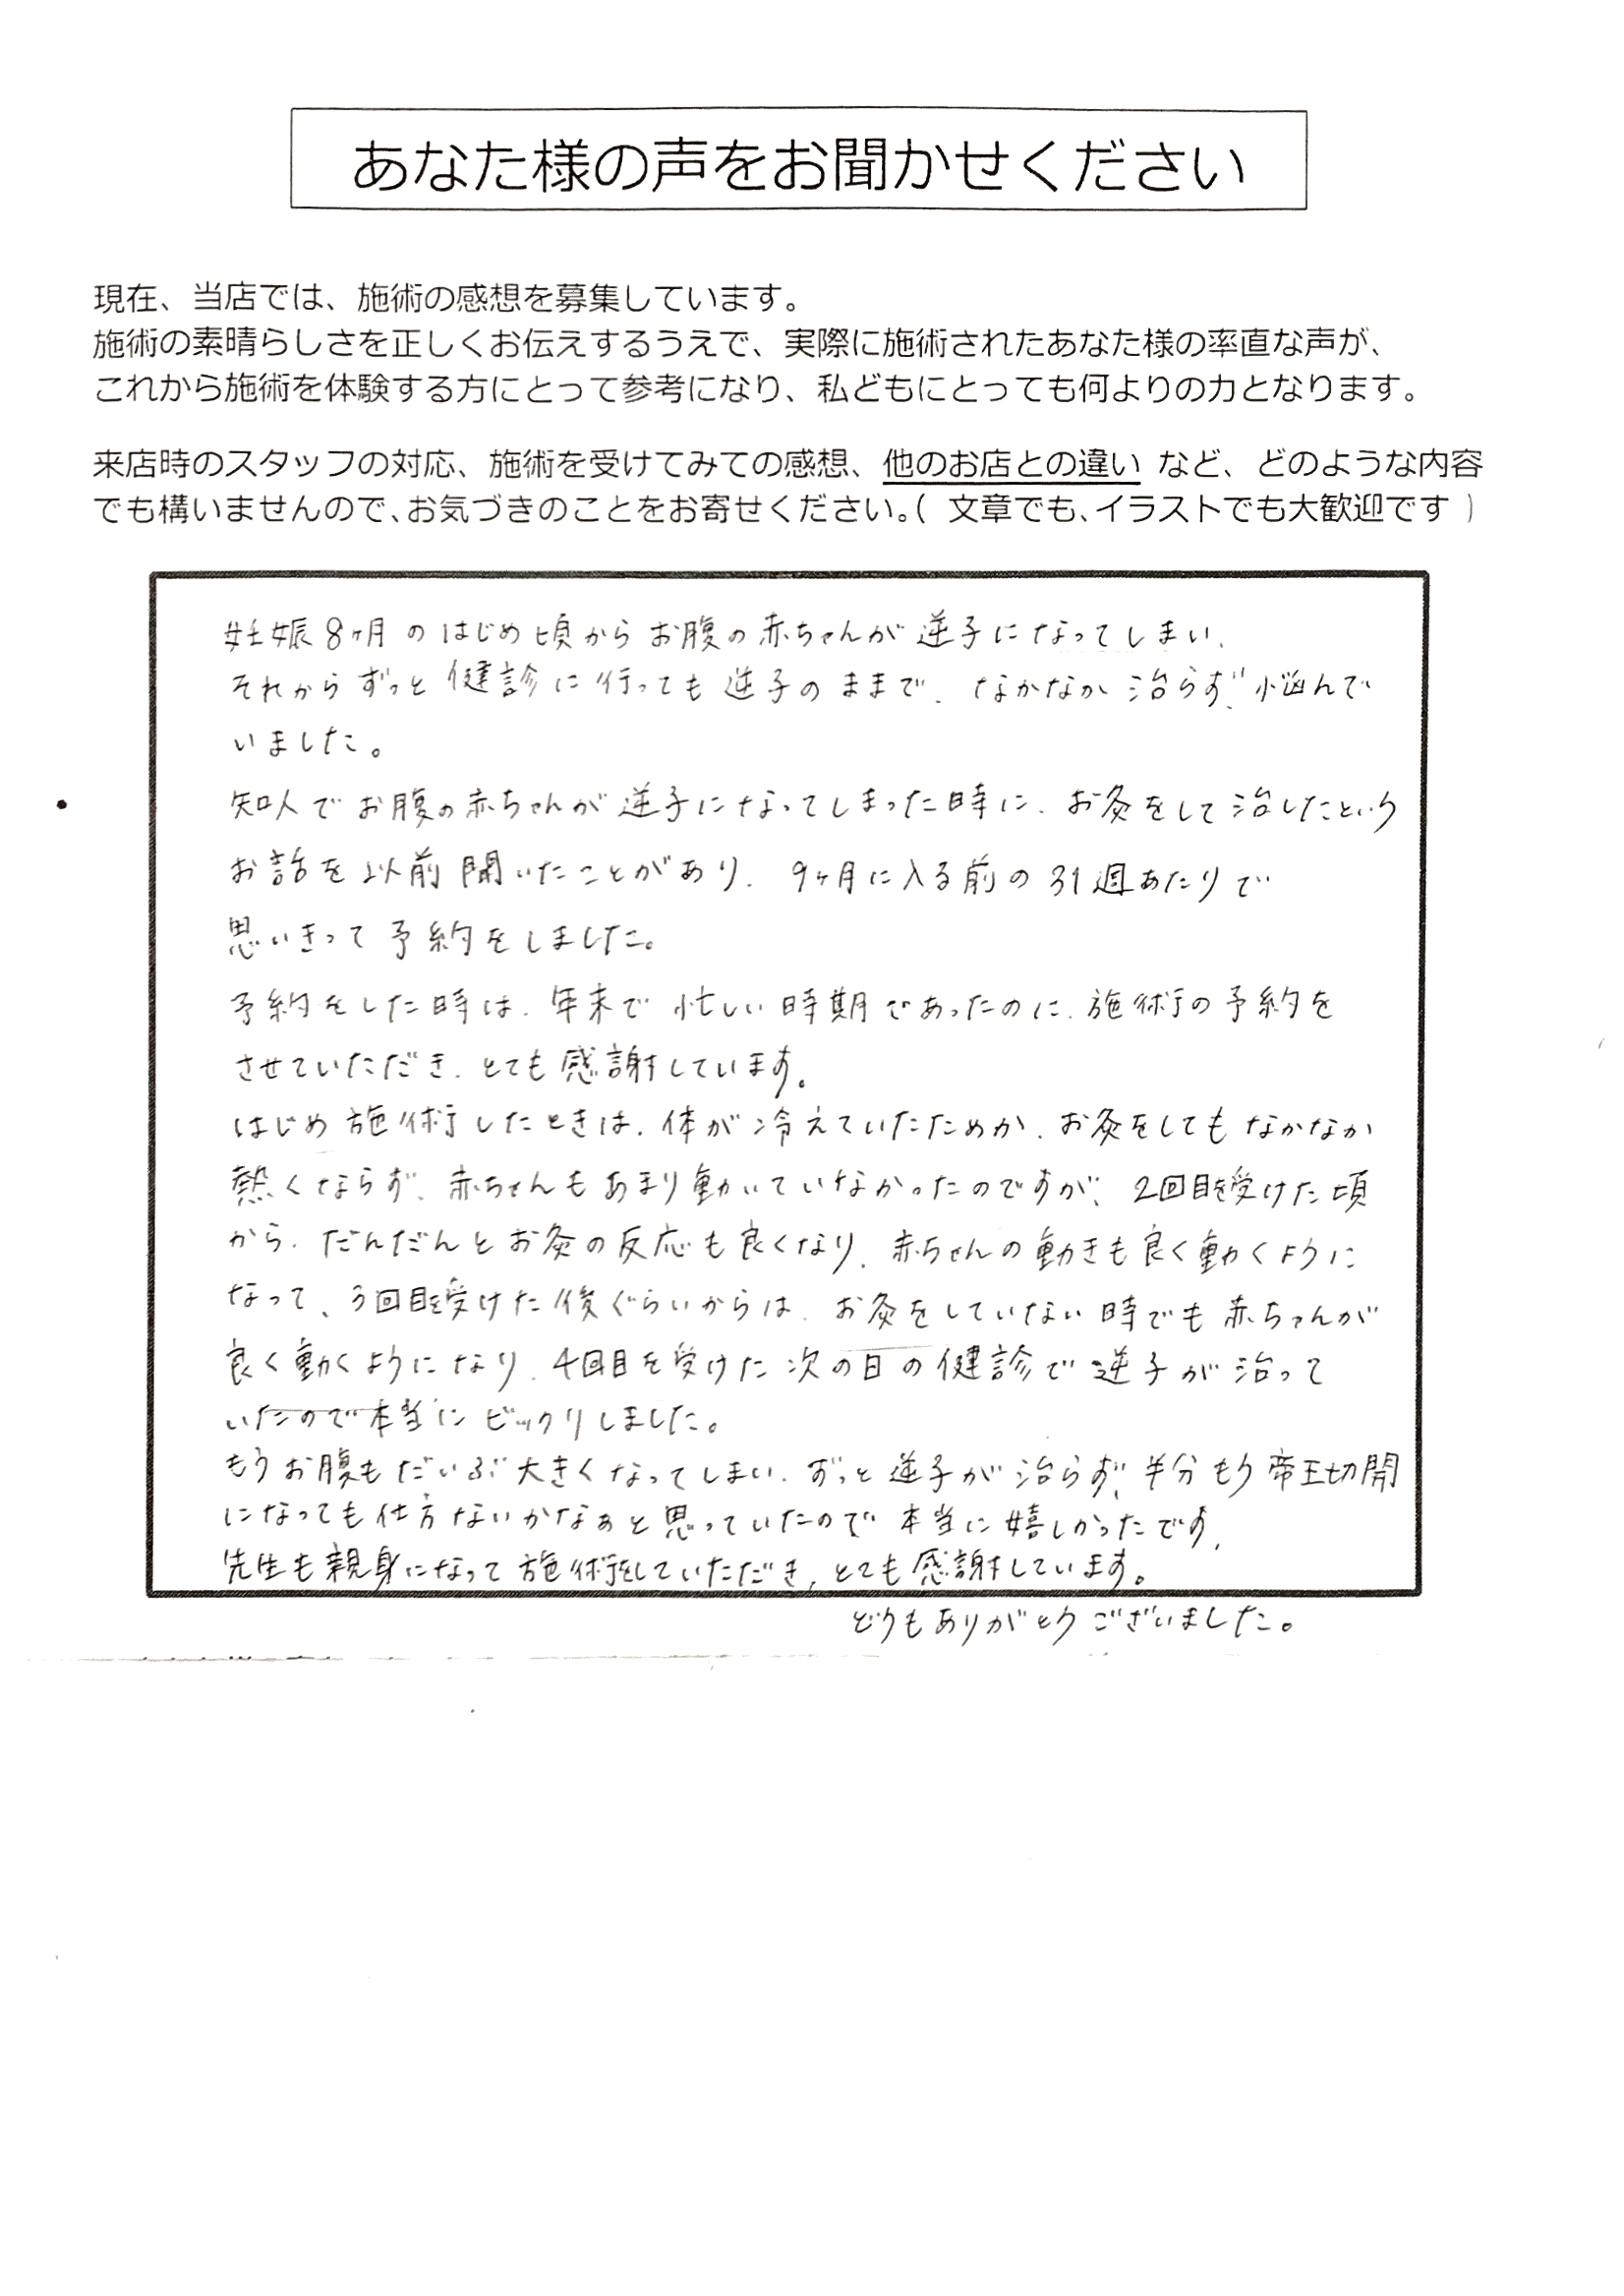 あなた様の声をお聞かせください
現在、当店では、施術の感想を募集しています。
施術の素晴らしさを正しくお伝えするうえで、実際に施術されたあなた様の率直な声が、
これから施術を体験する方にとって参考になり、私どもにとっても何よりの力となります。
来店時のスタッフの対応、施術を受けてみての感想、他のお店との違い など、どのような内容
でも構いませんので、お気づきのことをお寄せください。( 文章でも、イラストでも大歓迎です )
妊娠8ヶ月のはじめ頃からお腹の赤ちゃんが逆子になってしまい、
それからずっと健診に行っても逆子のままで、なかなか治らず、悩んで
いました。
知人でお腹の赤ちゃんが逆子になってしまった時に、お灸をして治したという
お話を以前聞いたことがあり、9ヶ月に入る前の31週あたりで
思いきって予約をしました。
予約をした時は、年末で忙しい時期であったのに、施術の予約を
させていただき、とても感謝しています。
はじめ施術したときは、体が冷えていたためか、お灸をしてもなかなか
熱くならず、赤ちゃんもあまり動いていなかったのですが、2回目を受けた頃
から、だんだんとお灸の反応も良くなり、赤ちゃんの動きも良く動くように
なって、3回目を受けた後ぐらいからは、お灸をしていない時でも赤ちゃんが
良く動くようになり、4回目を受けた次の日の健診で逆子が治って
いたので本当にビックリしました。
もうお腹もだいぶ大きくなってしまい、ずっと逆子が治らず、半分もう帝王切開
になっても仕方ないかなぁと思っていたので本当に嬉しかったです。
先生も親身になって施術をしていただき、とても感謝しています。
どうもありがとうございました。